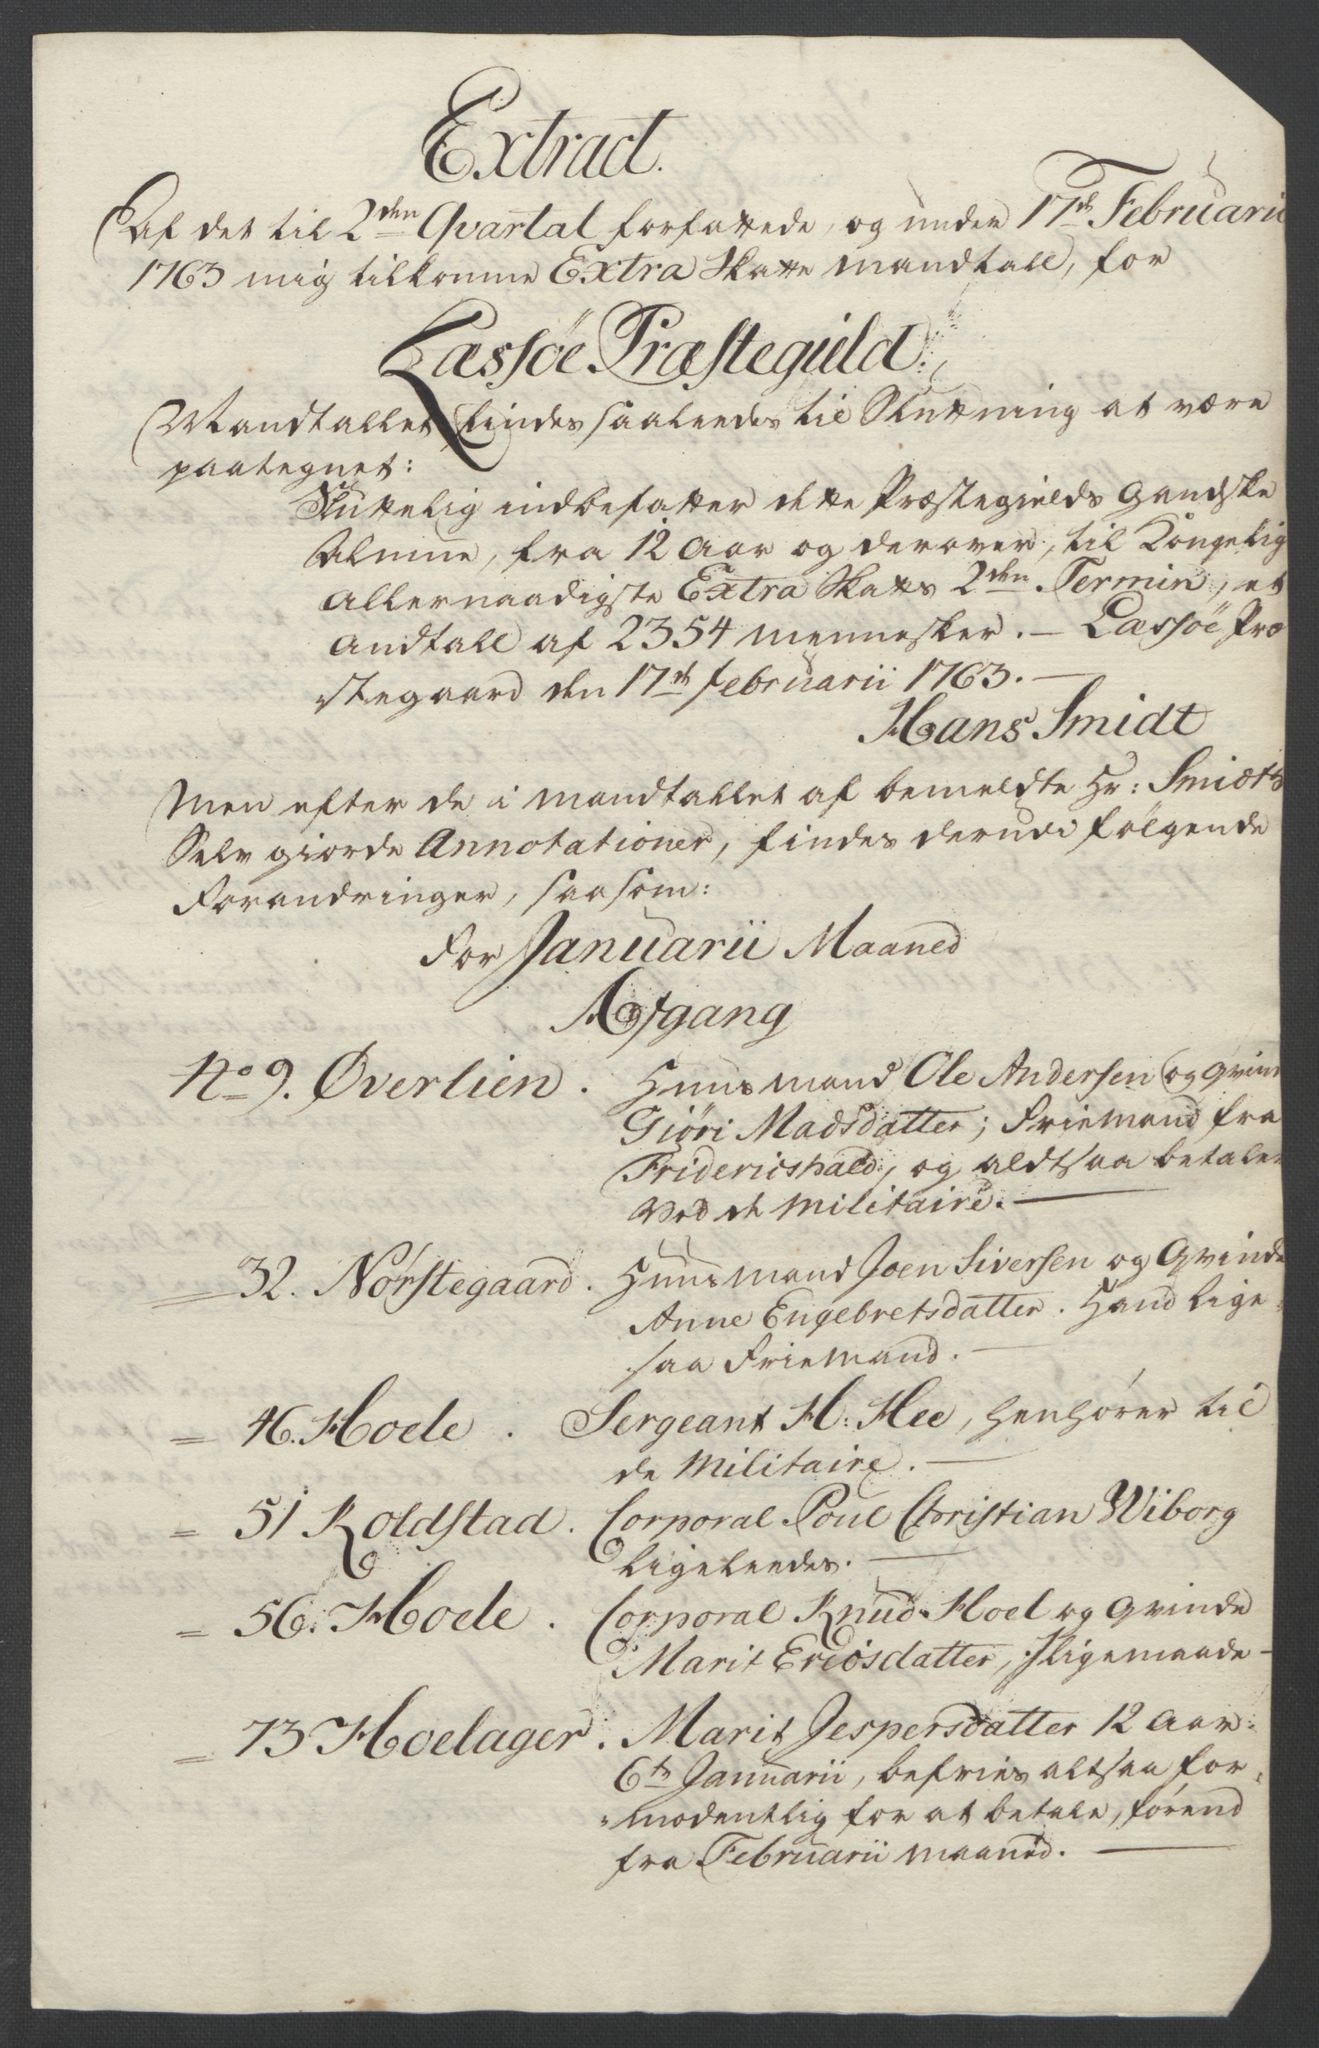 Extract.
Af det til 2den Qvartal forfattede, og under 17de Februarii
1763 mig tilkomne Extra Skatte Mandtall, for
Læssøe Præstegield.
Mandtallet findes saaleedes til Slutning at være
paategnet:
Sluttelig indbefatter dette Præstegields gandske
Almue, fra 12 Aar og derover, til Kongelig
Allernaadigste Extra Skatts 2den Termin, et
Andtall af 2354 Mennesker. — Læssøe Præ
stegaard den 17de Februarii 1763. —
Hans Smidt
Men efter de i Mandtallet af bemeldte Hr: Smidt
Selv giorde Annotationer, findes derudi følgende
Forandringer, saasom:
For Januarii Maaned
Afgang
No 9. Øverlien. Huusmand Ole Andersen og Qvinde
Giøri Madsdatter; Friemand fra
Fridericshald, og aldtsaa betaler
Ved de Militaire. —
= 32. Nørstegaard. Huusmand Joen Siversen og Qvinde
Anne Engebretsdatter. Hand lige-
saa Friemand. —
= 46. Hoele. Sergeant H: Hee, henhører til
de Militaire. —
= 51 Koldstad. Corporal Poul Christian Wiborg
ligeleedes. —
= 56. Hoele. Corporal Knud Hoel og Qvinde
Marit Ericsdatter, Jligemaade —
= 73 Hoelager. Marit Jespersdatter 12 Aar
6te Januarii, befries altsaa for-
modentlig for at betale, førend
fra Februarii Maaned. —